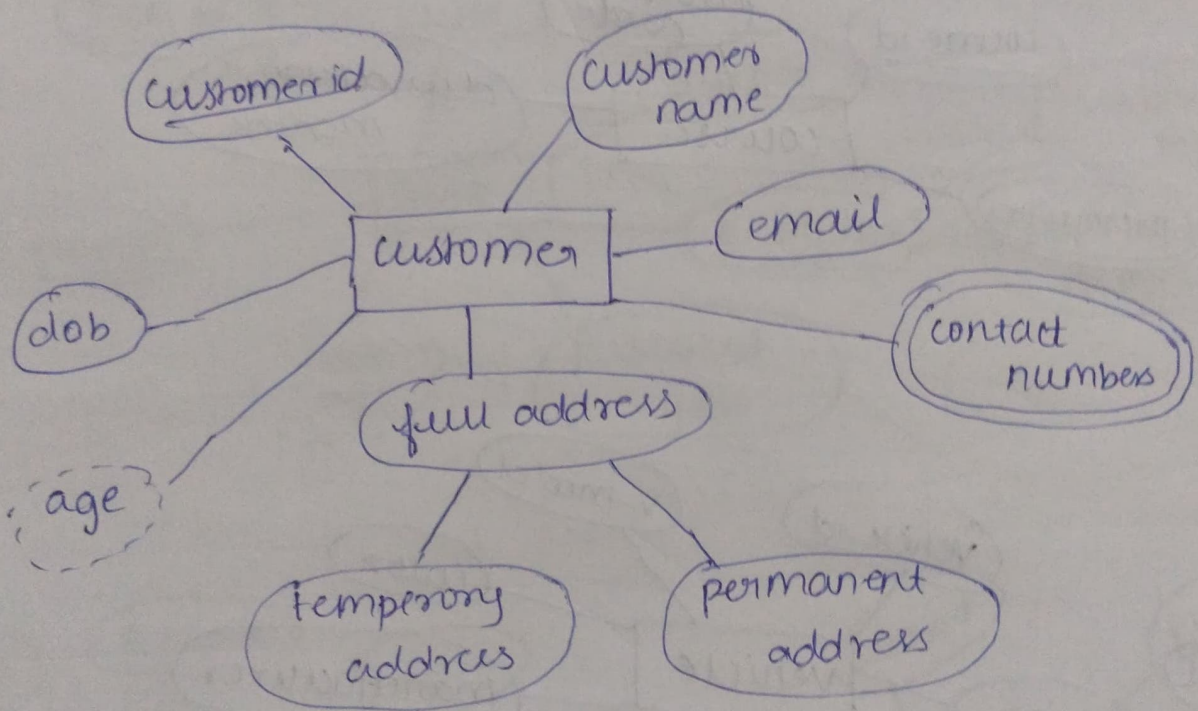 customer id
customer
name
customer
email
dob
contact
numbers
full address
age
temperory
address
permanent
address